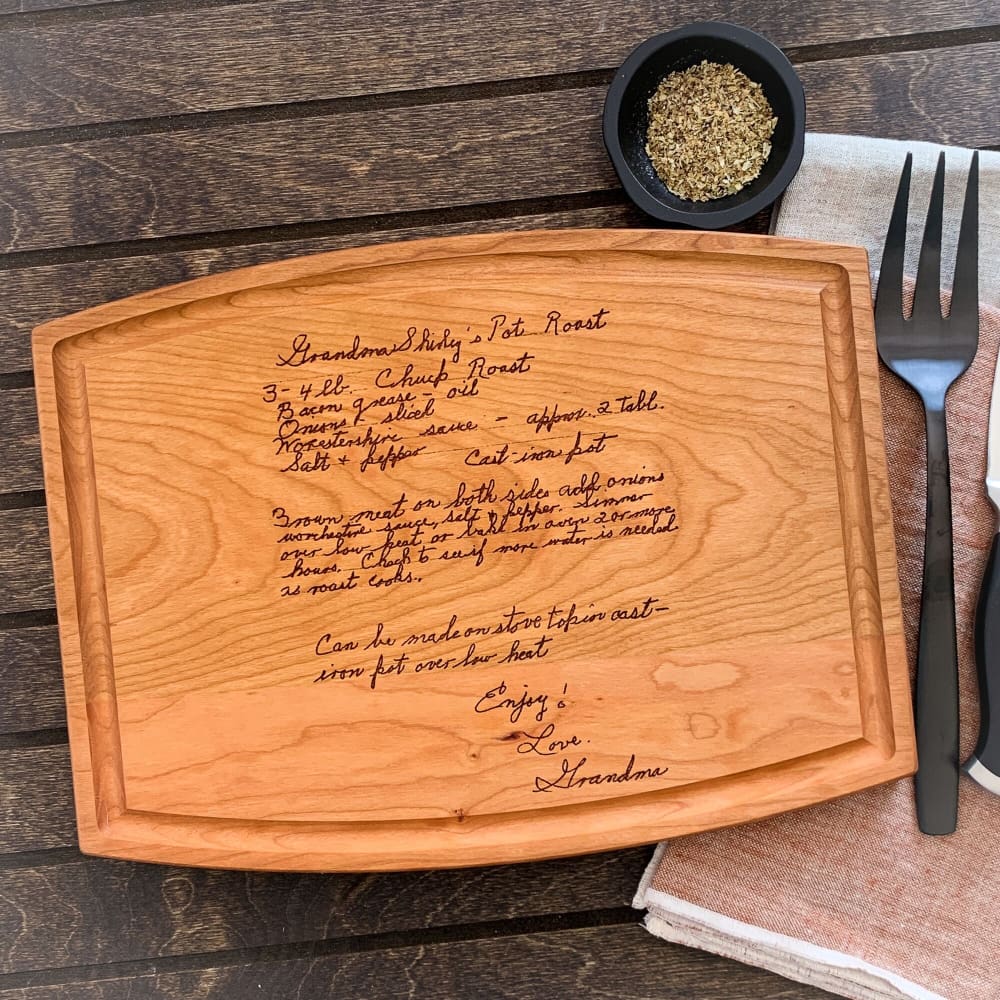 Grandma Shirley's Pot Roast
3-4 lb. Chuck Roast
Bacon grease - oil
Onions sliced
Worestershire sauce - approx. 2 Tabl.
Salt + pepper Cast-iron pot
Brown meat on both sides add onions
worchestire sauce, salt & pepper. Simmer
over low heat or bake in oven 2 or more
hours. Check to see if more water is needed
as roast cooks.
Can be made on stove top in cast-
iron pot over low heat
Enjoy!
Love.
Grandma